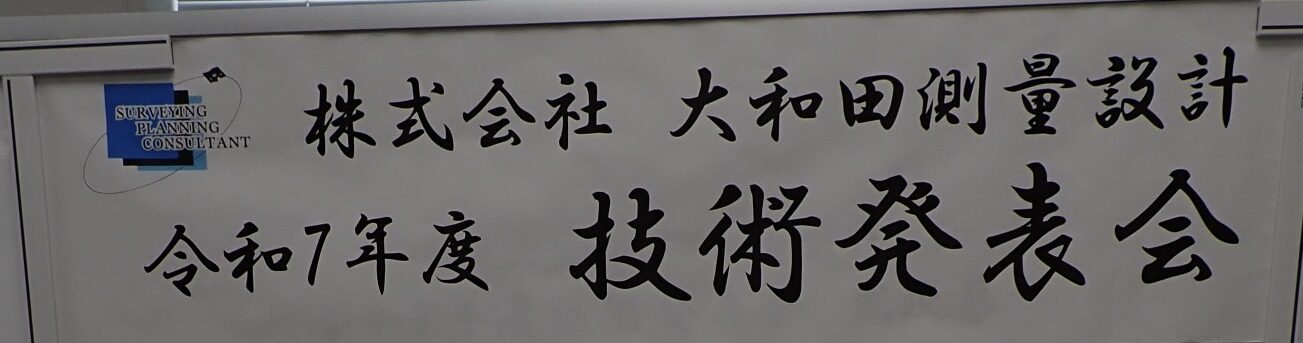 SURVEYING
PLANNING
CONSULTANT
株式会社 大和田測量設計
令和7年度 技術発表会